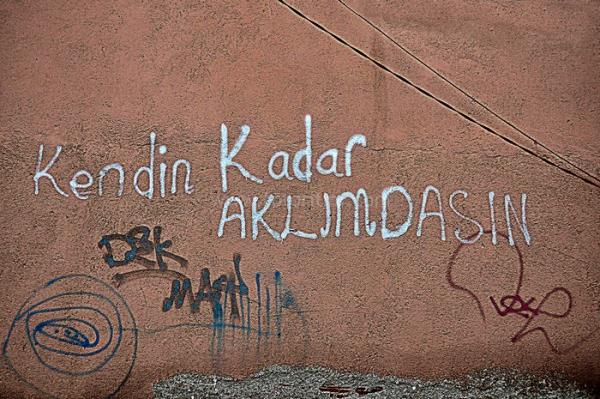 Kendin Kadar
AKLIMDASIN